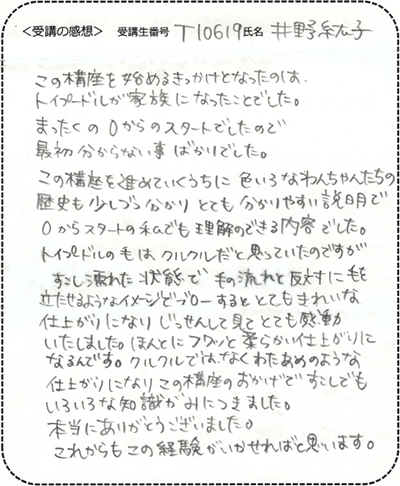 <受講の感想> 受講生番号 T10619 氏名 井野紘子
この講座を始めるきっかけとなったのは、
トイプードルが家族になったことでした。
まったくの0からのスタートでしたので
最初分からない事ばかりでした。
この講座を進めていくうちに色いろなわんちゃんたちの
歴史も少しづつ分かりとても分かりやすい説明で
0からスタートの私でも理解のできる内容でした。
トイプードルの毛はクルクルだと思っていたのですが
すこし濡れた状態で毛の流れと反対に毛を
立たせるようなイメージでブローするととてもきれいな
仕上がりになりじっせんして見てとても感動
いたしました。ほんとにフワッと柔らかい仕上がりに
なるんです。クルクルではなくわたあめのような
仕上がりになりこの講座のおかげですこしでも
いろいろな知識がみにつきました。
本当にありがとうございました。
これからもこの経験がいかせればと思います。